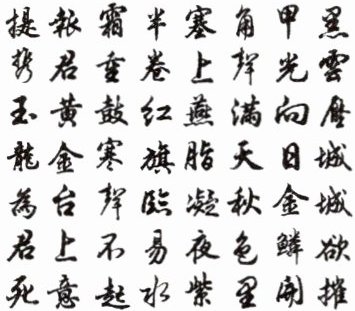 黑雲壓城城欲摧
甲光向日金鱗開
角聲滿天秋色里
塞上燕脂凝夜紫
半卷紅旗臨易水
霜重鼓寒聲不起
報君黃金台上意
提攜玉龍為君死